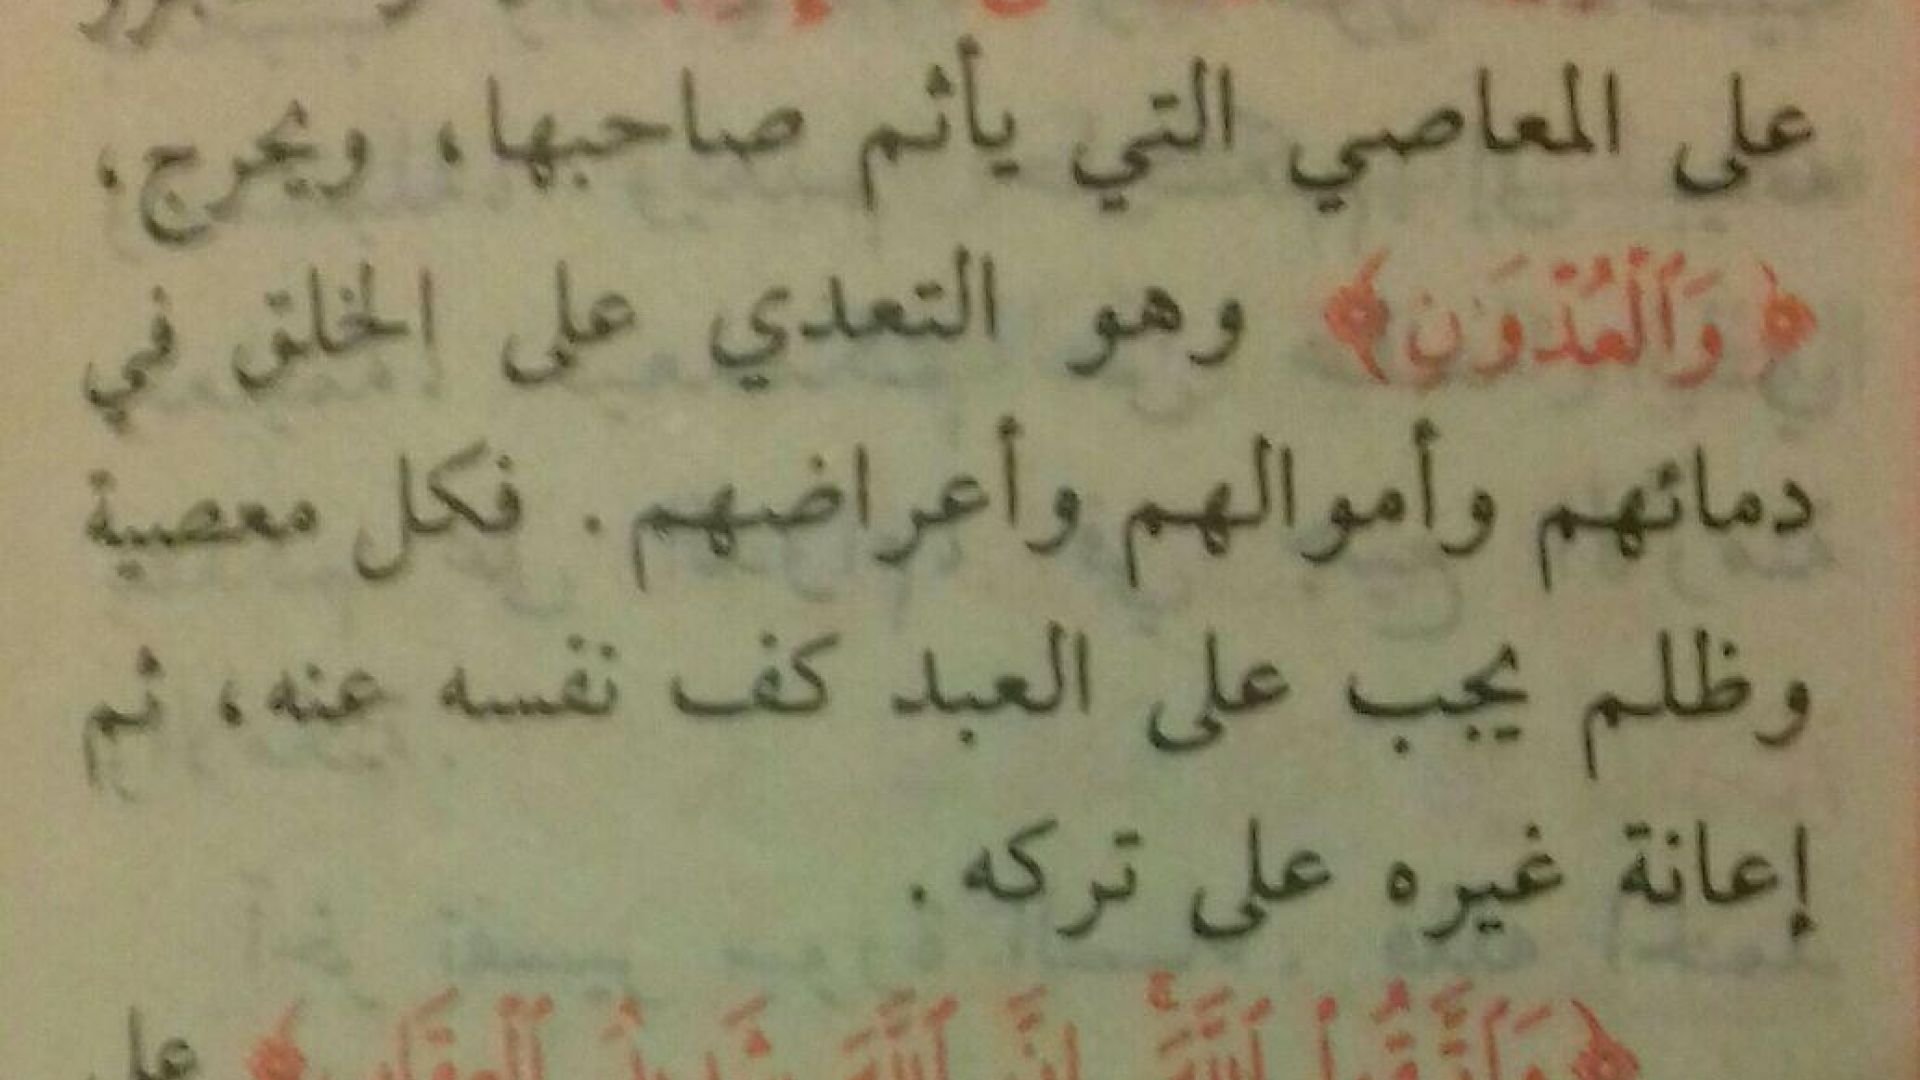 على المعاصي التي يأثم صاحبها، ويحرج.
﴿وَٱلْعُدْوَٰنِ﴾ وهو التعدي على الخلق في
دمائهم وأموالهم وأعراضهم. فكل معصية
وظلم يجب على العبد كف نفسه عنه، ثم
إعانة غيره على تركه.
﴿وَٱتَّقُوا۟ ٱللَّهَ ۖ إِنَّ ٱللَّهَ شَدِيدُ ٱلْعِقَابِ﴾ على